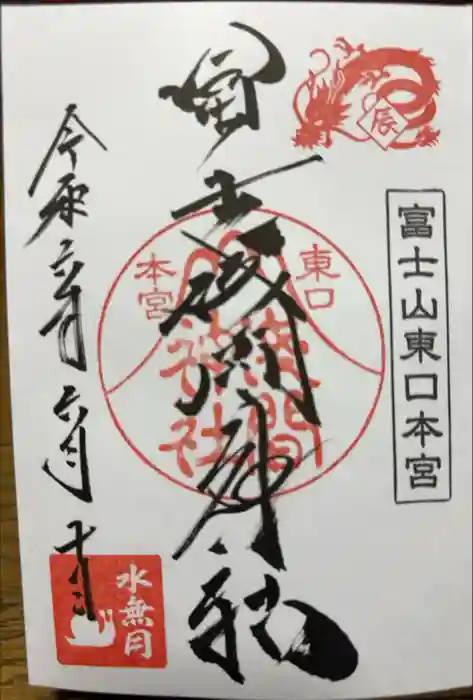 辰
富士山東口本宮
冨士浅間神社
東口
本宮
浅間
神社
令和六年六月十日
水無月